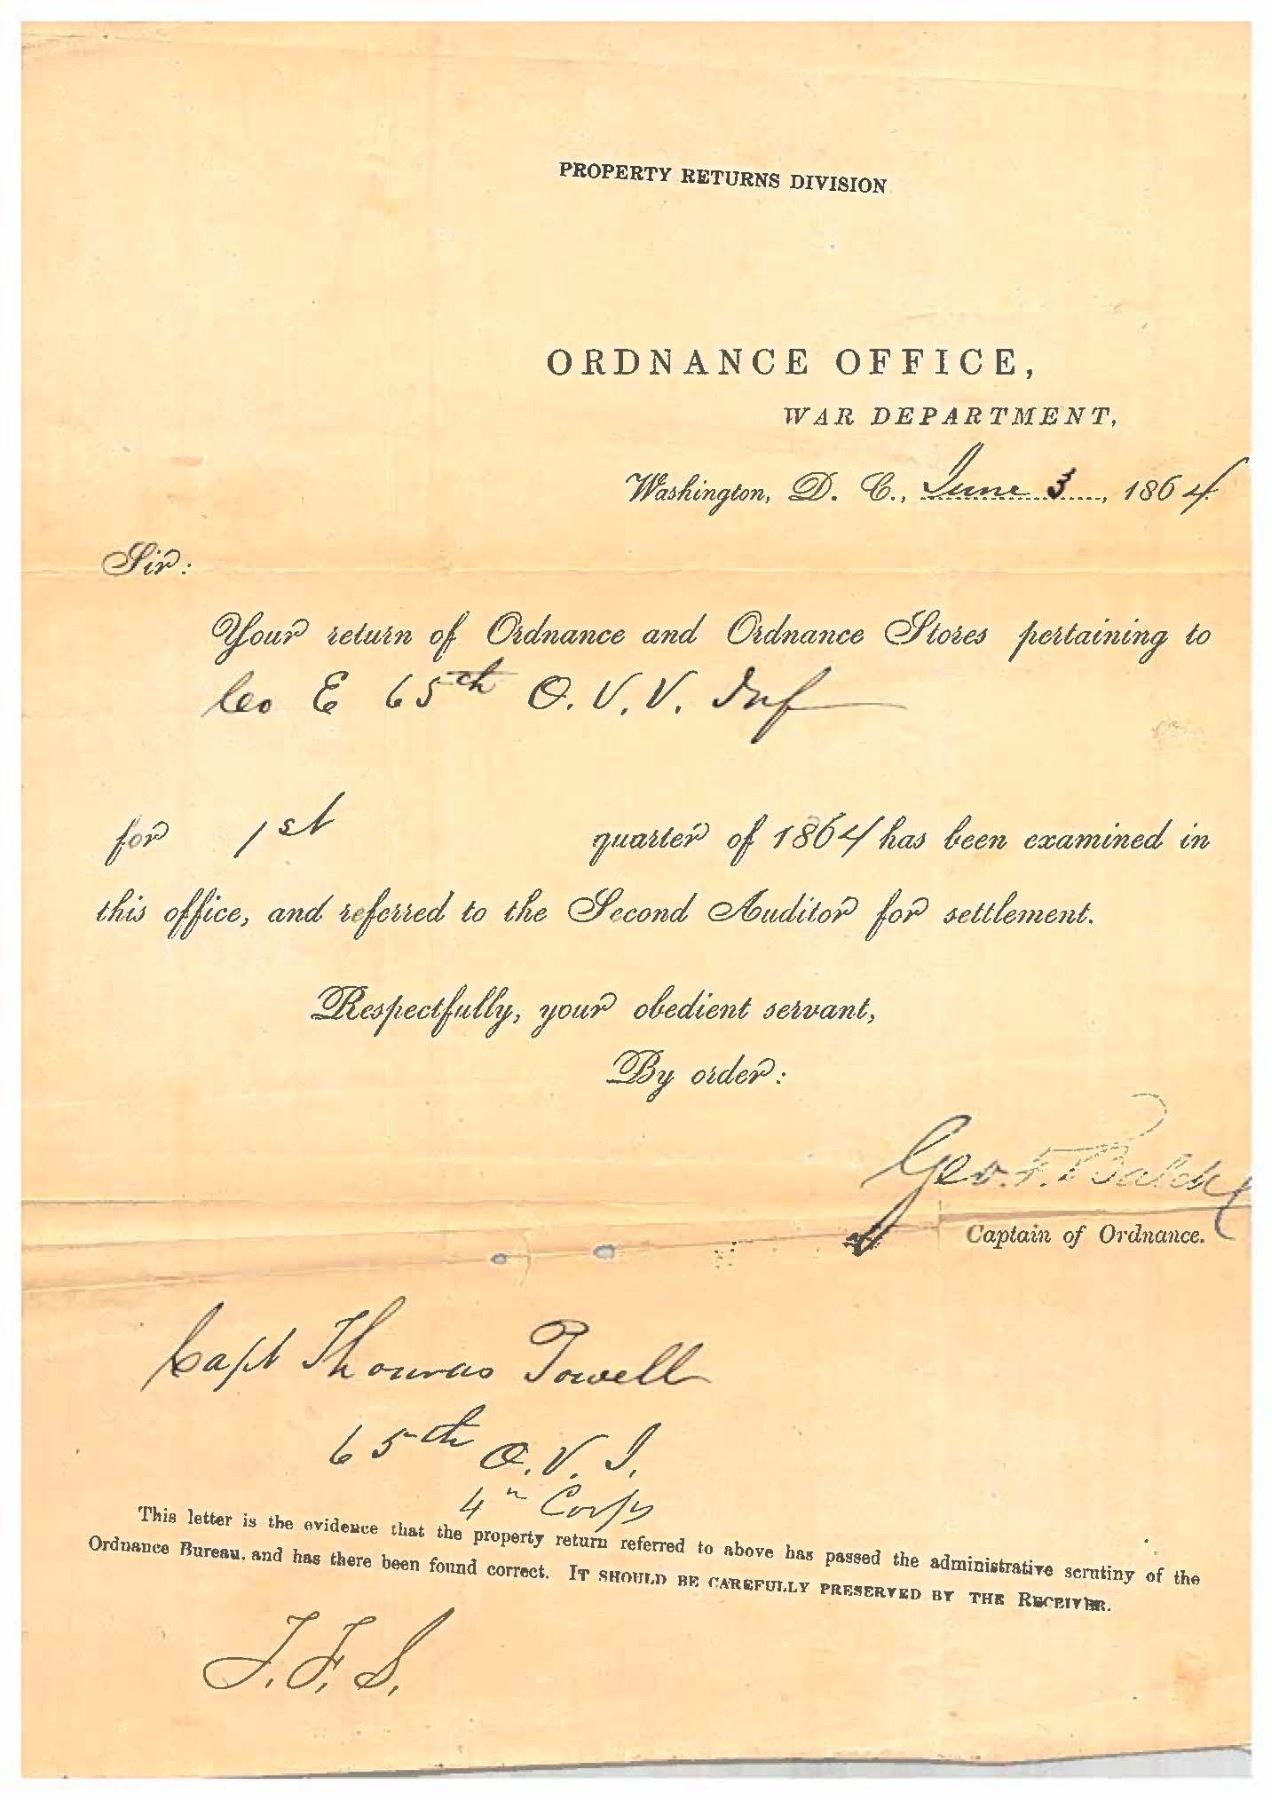 PROPERTY RETURNS DIVISION
ORDNANCE OFFICE,
WAR DEPARTMENT,
Washington, D. C., June 3, 1864
Sir:
Your return of Ordnance and Ordnance Stores pertaining to
Co E 65th O. V. V. Inf
for 1st quarter of 1864 has been examined in
this office, and referred to the Second Auditor for settlement.
Respectfully, your obedient servant,
By order:
Geo. T. Balch
Captain of Ordnance.
Capt Thomas Powell
65th O. V. I.
4th Corps
This letter is the evidence that the property return referred to above has passed the administrative scrutiny of the
Ordnance Bureau, and has there been found correct. IT SHOULD BE CAREFULLY PRESERVED BY THE RECEIVER.
J. F. S.